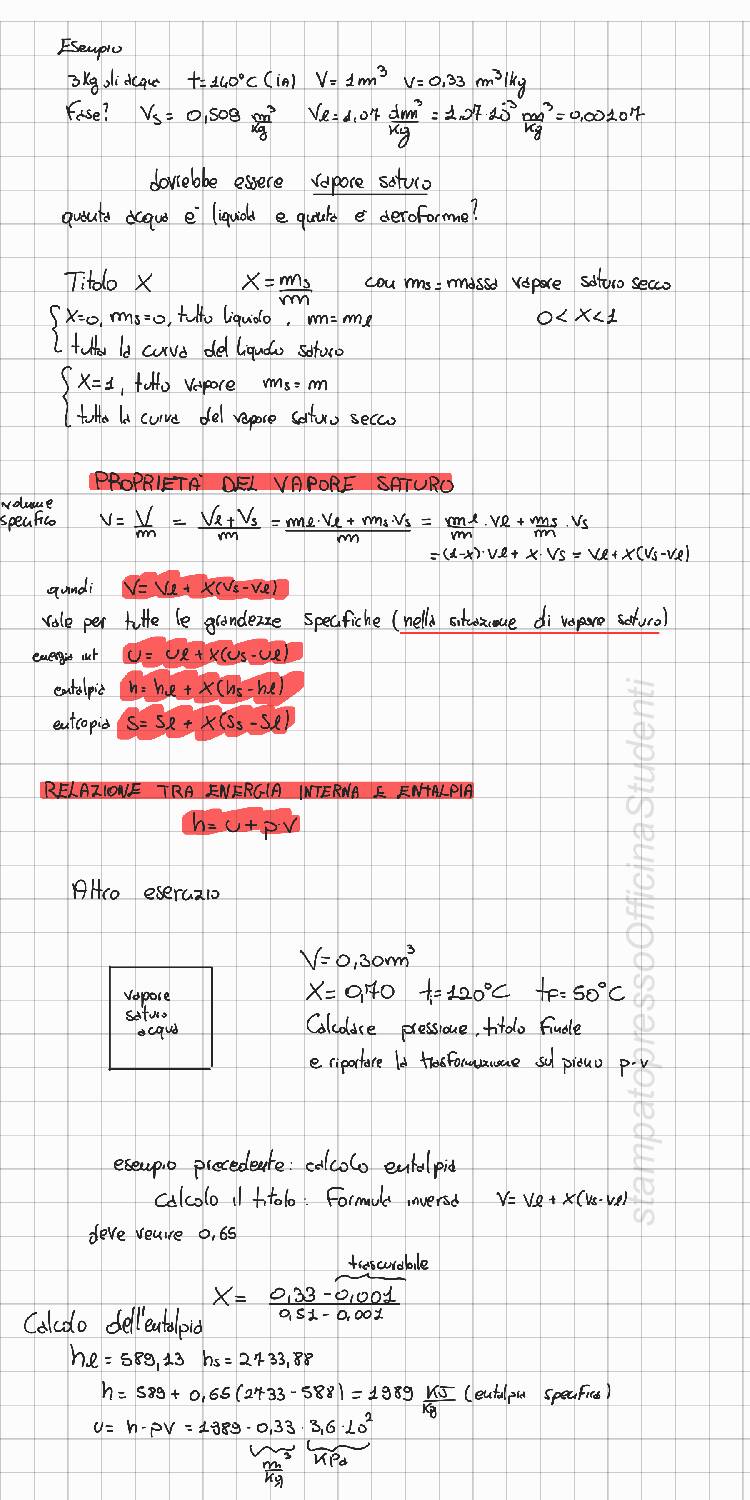 Esempio
3Kg di acqua t=140°C (in) V=1m³ v=0,33 m³/kg
Fase? Vs = 0,509 m³/Kg Vl=1,07 dm³/Kg = 1,07·10⁻³ m³/Kg = 0,00107
dovrebbe essere vapore saturo
quanta acqua è liquida e quanta è aeroforme?
Titolo X X = ms/m con ms = massa vapore saturo secco
X=0, ms=0, tutto liquido, m=ml 0<X<1
tutta la curva del liquido saturo
X=1, tutto vapore ms=m
tutta la curva del vapore saturo secco
PROPRIETA' DEL VAPORE SATURO
volume specifico v = V/m = Vl+Vs/m = ml·Vl + ms·Vs/m = ml/m · Vl + ms/m · Vs
=(1-x)·Vl + x·Vs = Vl+x(Vs-Vl)
quindi V= Vl + X(Vs-Vl)
vale per tutte le grandezze specifiche (nella situazione di vapore saturo)
energia int U= Ul+x(Us-Ul)
entalpia h= hl + X(hs-hl)
entropia S= Sl + X(Ss-Sl)
RELAZIONE TRA ENERGIA INTERNA E ENTALPIA
h= u + p·v
Altro esercizio
V=0,30m³
X=0,70 ti=120°C tf=50°C
vapore
saturo
acqua
Calcolare pressione, titolo finale
e riportare la trasformazione sul piano p-v
esempio precedente: calcolo entalpia
calcolo il titolo: Formula inversa V= Vl + X(Vs-Vl)
deve venire 0,65
trascurabile
X = 0,33 - 0,001 / 0,51 - 0,001
Calcolo dell'entalpia
hl = 589,13 hs = 2733,88
h = 589 + 0,65(2733-588) = 1989 KJ/Kg (entalpia specifica)
u= h-pv = 1989 - 0,33 · 3,6·10²
m³/Kg KPa
stampatopressoOfficinaStudenti